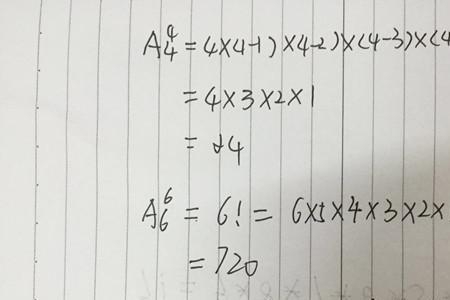 A₄⁴ = 4×4-1)×4-2)×(4-3)×(4
= 4×3×2×1
= 24
A₆⁶ = 6! = 6×5×4×3×2×
= 720